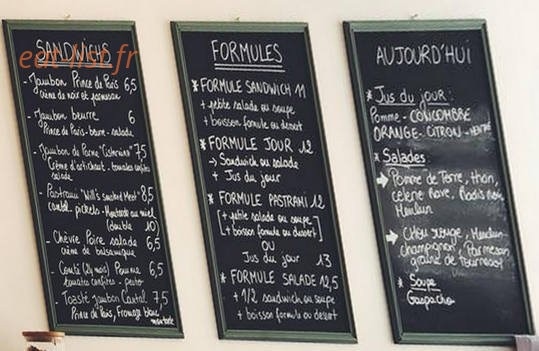 eat-list.fr
SANDWICHS
- Jambon Prince de Paris 6,5
crème de noix et parmesan
- Jambon beurre 6
Prince de Paris - beurre - salade
- Jambon de Parme "Cisterins" 7,5
Crème d'artichaut - tomates confites
salade
- Pastrami "Will's smoked Meat" 8,5
cantal, pickels - Moutarde au miel
(double 10)
- Chèvre Poire salade 6,5
crème de balsamique
- Comté (24 mois) Pomme 6,5
tomates confites - pesto
- Toasté jambon Cantal 7,5
Prince de Paris, Fromage blanc
moutarde
FORMULES
* FORMULE SANDWICH 11
+ petite salade ou soupe
+ boisson formule ou dessert
* FORMULE JOUR 12
→ Sandwich ou salade
+ Jus du jour
* FORMULE PASTRAMI 12
[+ petite salade ou soupe]
[+ boisson formule ou dessert]
OU
Jus du jour 13
* FORMULE SALADE 12,5
+ 1/2 sandwich ou soupe
+ boisson formule ou dessert
AUJOURD'HUI
* Jus du jour :
Pomme - CONCOMBRE
ORANGE - CITRON - MENTHE
* Salades
→ Pomme de Terre, thon,
celeri rave, Radis noir
→ Chou rouge,
champignon, Parmesan
graine de Tournesol
* Soupe
Gaspacho